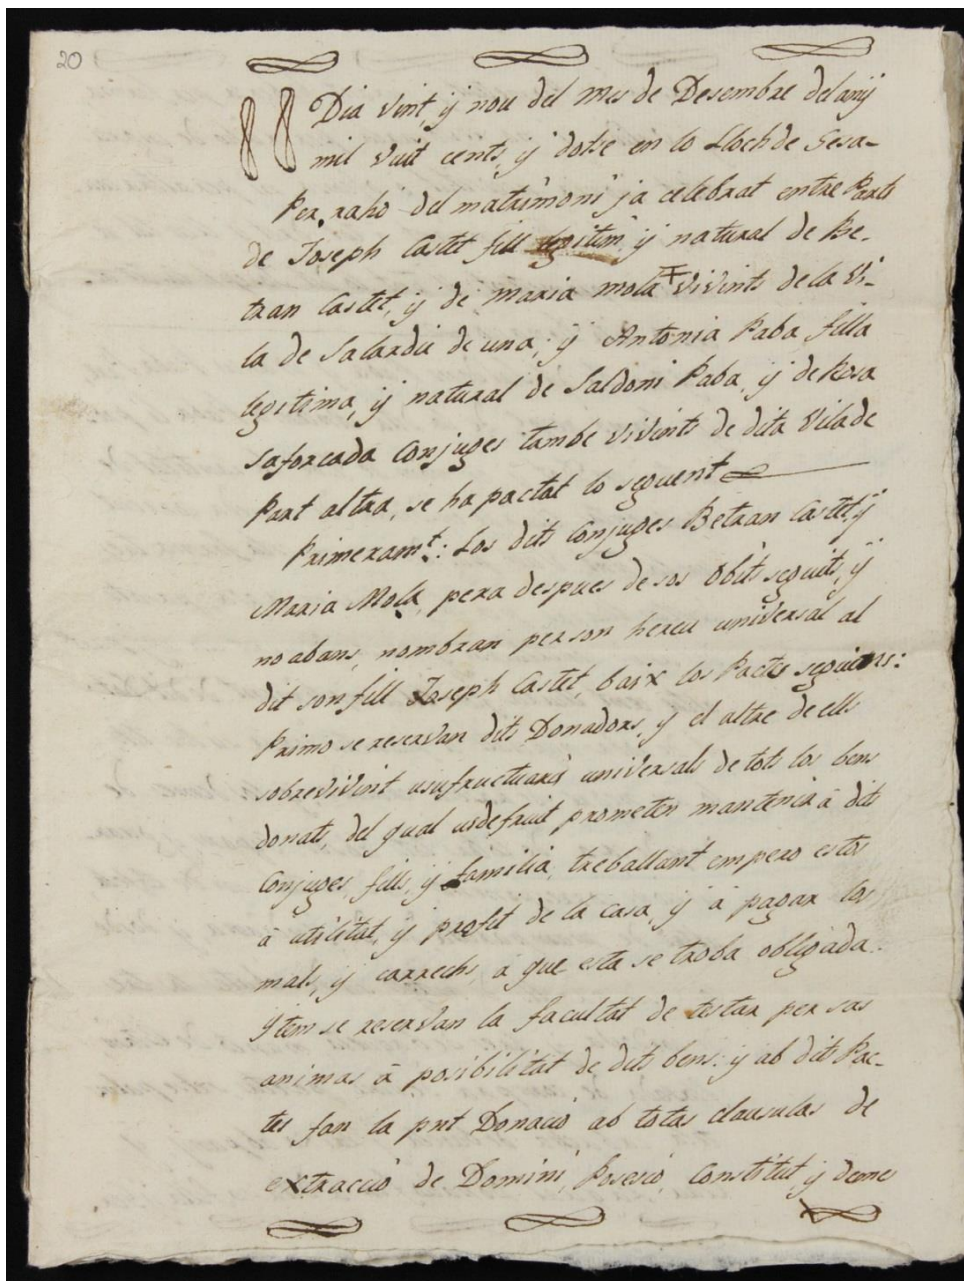 20
Dia vint, y nou del mes de Desembre del añy
mil vuit cents, y dotse en lo Lloch de Gesa-
Per rahó del matrimoni ja celebrat entre Parts
de Joseph Castet fill llegitim, y natural de Be-
tran Castet, y de Maria Mola ‡ vivints de la Vi-
la de Salardú de una; y Antonia Paba filla
legitima, y natural de Saldoni Paba, y de Rosa
Saforcada Conjuges tambe vivints de dita Vila de
Part altra, se ha pactat lo seguent
Primeramt.: Los dits Conjuges Betran Castet, y
Maria Mola, pera despues de sos obits seguits, y
no abans, nombran per son hereu universal al
dit son fill Joseph Castet, baix los Pactes seguens:
Primo se reservan dits Donadors, y el altre de ells
sobrevivint usufructuaris universals de tots los bens
donats, del qual usdefruit prometen mantenir á dits
Conjuges, fills, y familia, treballant empero estos
á utilitat, y profit de la casa, y á pagar los
mals, y carrechs, á que esta se troba obligada.
Ytem se reservan la facultat de testar per sas
animas á posibilitat de dits bens: y ab dits Pac-
tes fan la pnt Donació ab totas clausulas de
extracció de Domini, Posesió, Constitut, y deme